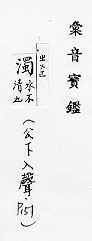 彙音寶鑑
出入五
濁水不清也
(公下入聲 P151)